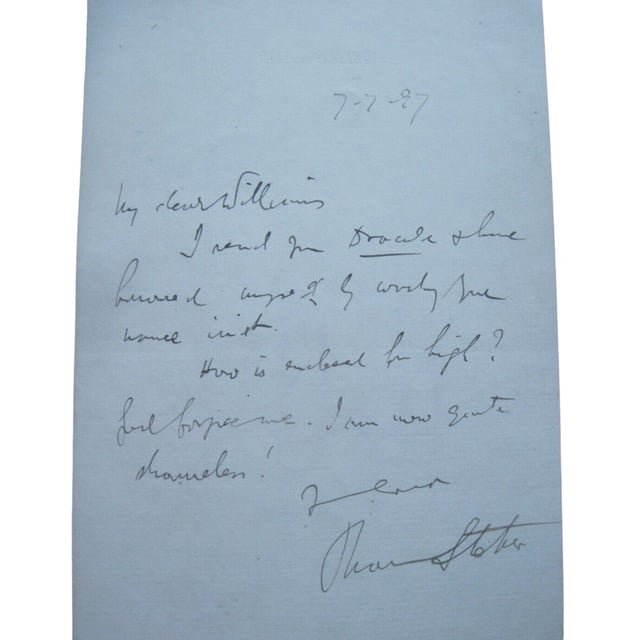 7-7-97
My dear Williams
I send you Dracula & have
honoured myself by writing your
name in it.
How is enclosed for high?
God forgive me. I am now quite
shameless!
Yours
Bram Stoker